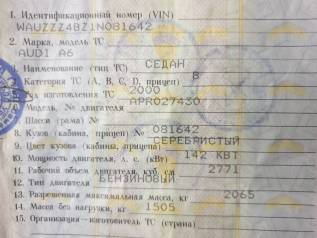 1. Идентификационный номер (VIN)
WAUZZZ4BZ1N081642
2. Марка, модель ТС
AUDI A6
3. Наименование (тип ТС) СЕДАН
4. Категория ТС (A, B, C, D, прицеп) B
5. Год изготовления ТС 2000
6. Модель, № двигателя APR027430
7. Шасси (рама) №
8. Кузов (кабина, прицеп) № 081642
9. Цвет кузова (кабины, прицепа) СЕРЕБРИСТЫЙ
10. Мощность двигателя, л. с. (кВт) 142 КВТ
11. Рабочий объем двигателя, куб. см 2771
12. Тип двигателя БЕНЗИНОВЫЙ
13. Разрешенная максимальная масса, кг 2065
14. Масса без нагрузки, кг 1505
15. Организация—изготовитель ТС (страна)